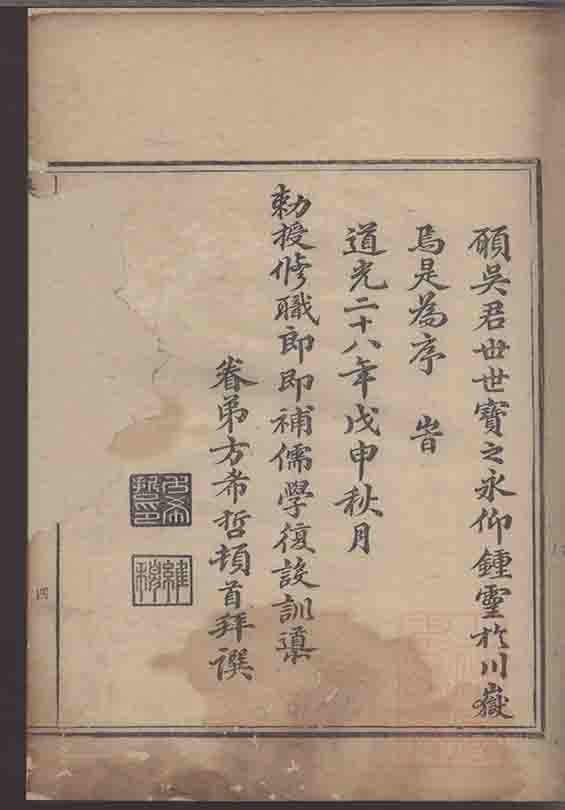 願吳君世世寶之永仰鍾靈於川嶽
焉是為序 旹
道光二十八年戊申秋月
勅授修職郎即補儒學復設訓導
眷弟方希哲頓首拜譔
四